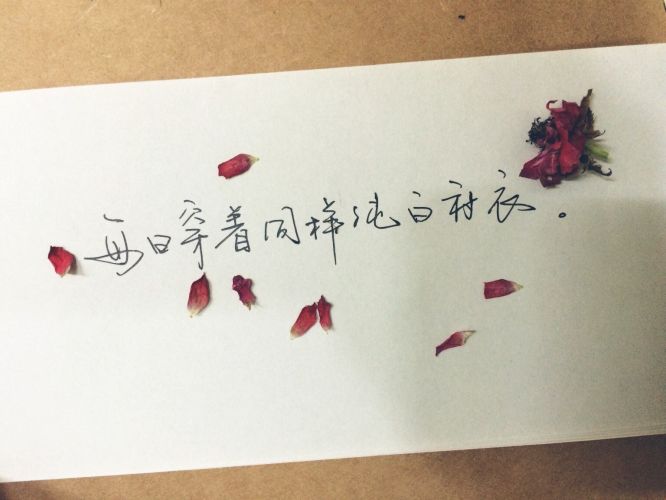 每日穿着同样纯白衬衣。